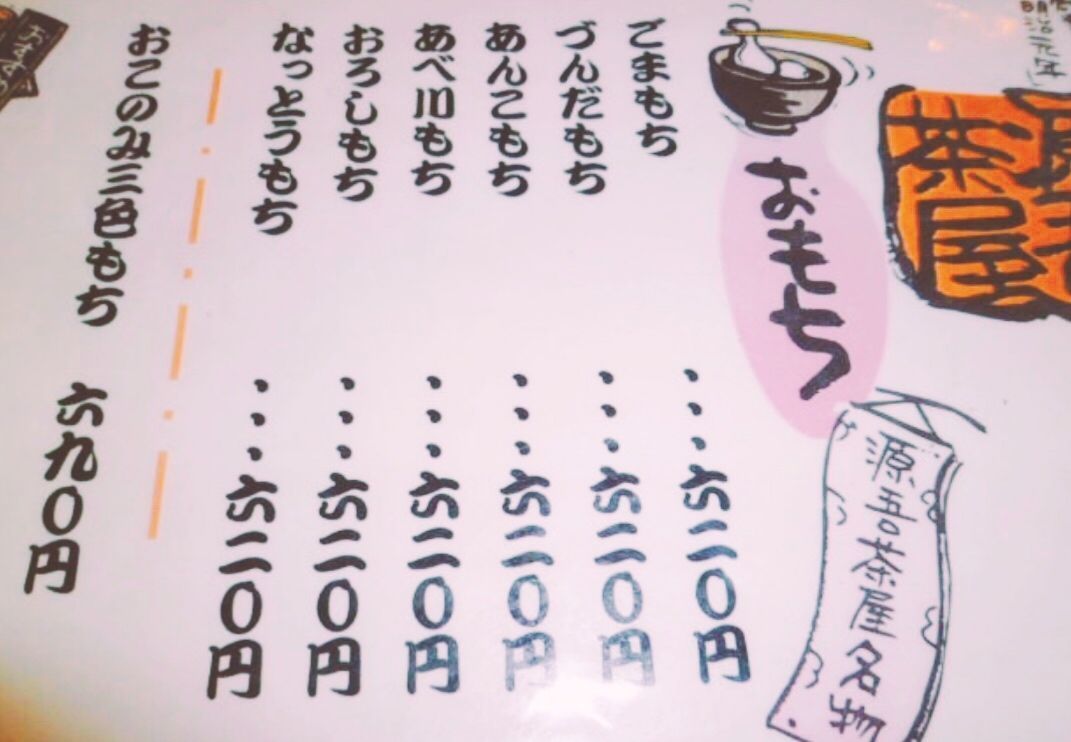 明治元年
茶屋
おもち
源吾茶屋名物
ごまもち・・・六二〇円
づんだもち・・・六二〇円
あんこもち・・・六二〇円
あべ川もち・・・六二〇円
おろしもち・・・六二〇円
なっとうもち・・・六二〇円
おこのみ三色もち 六九〇円